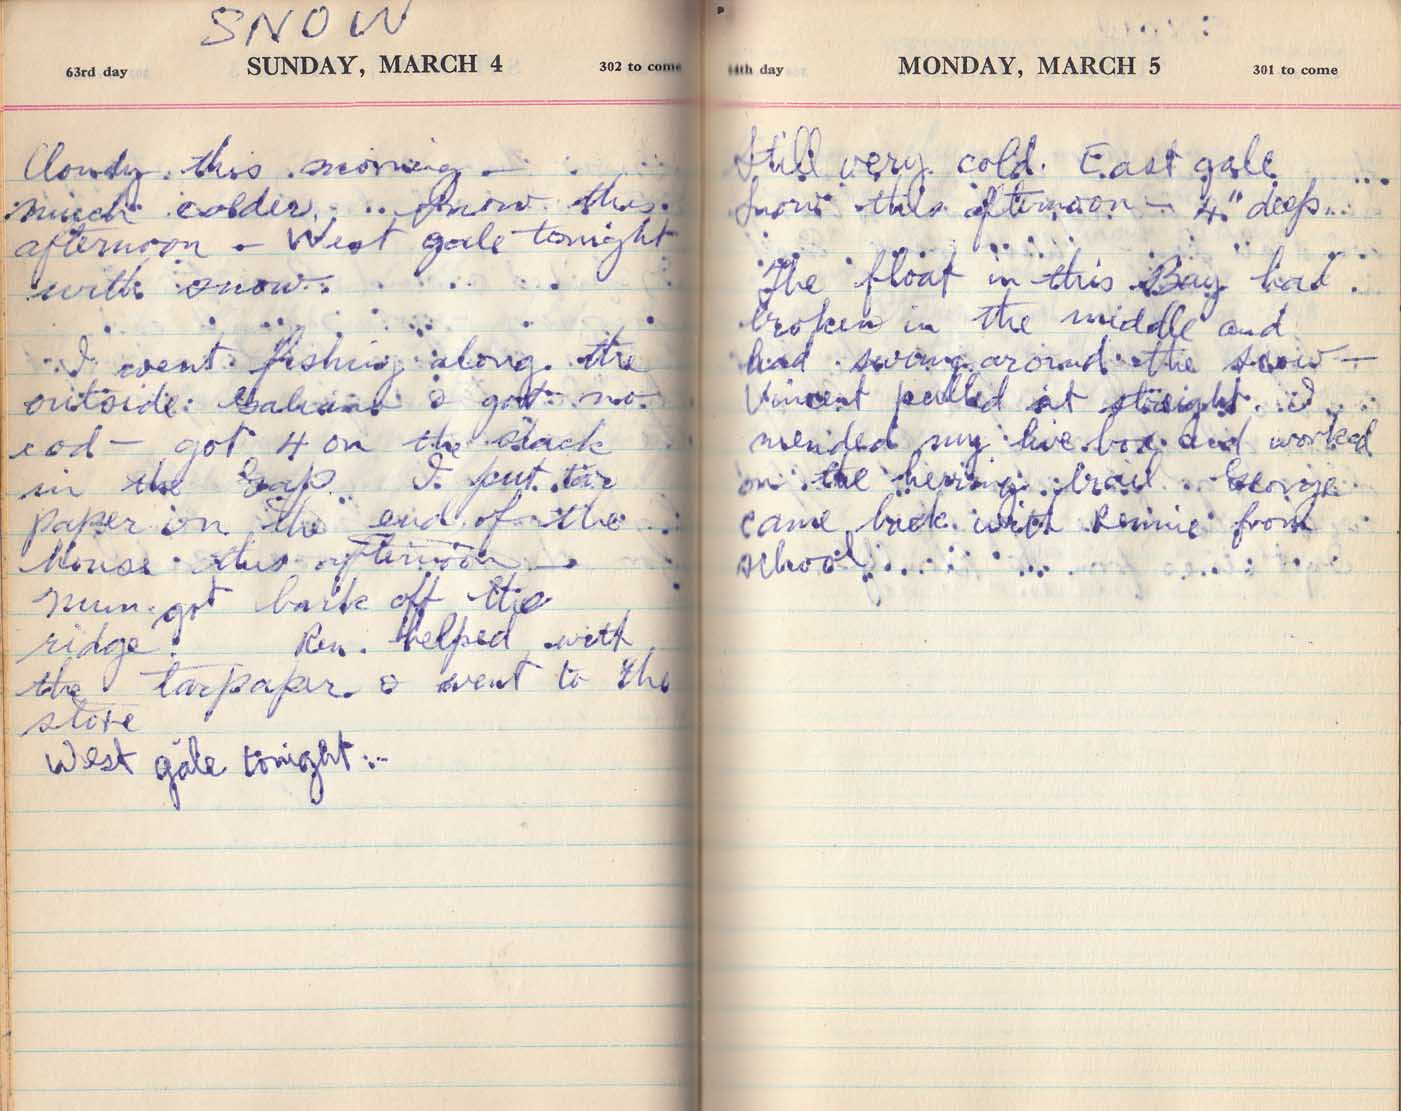 SNOW
63rd day SUNDAY, MARCH 4 302 to come
Cloudy this morning -
much colder. Snow this
afternoon - West gale tonight
with snow.
I went fishing along the
outside Galiano & got no
cod - got 4 on the slack
in the Gap. I put tar
paper on the end of the
House this afternoon -
Mum got bark off the
ridge. Ren. helped with
the tarpaper & went to the
store
West gale tonight.
64th day MONDAY, MARCH 5 301 to come
Still very cold. East gale
Snow this afternoon - 4" deep.
The float in this Bay had
broken in the middle and
had swung around the
Vincent pulled it straight. I
mended my live box and worked
on the herring brail. George
came back with Rennie from
school.